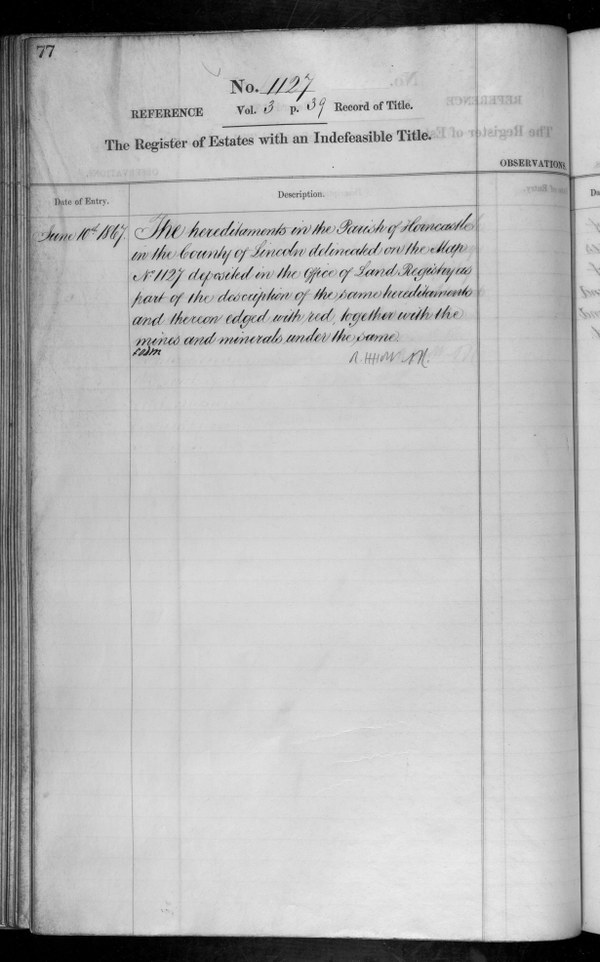 77
No. 1127
REFERENCE Vol. 3 p. 39 Record of Title.
The Register of Estates with an Indefeasible Title.
OBSERVATIONS
Date of Entry.
Description.
June 10th 1867.
The hereditaments in the Parish of Horncastle
in the County of Lincoln delineated on the Map
No 1127 deposited in the Office of Land Registry as
part of the description of the same hereditaments
and thereon edged with red, together with the
mines and minerals under the same.